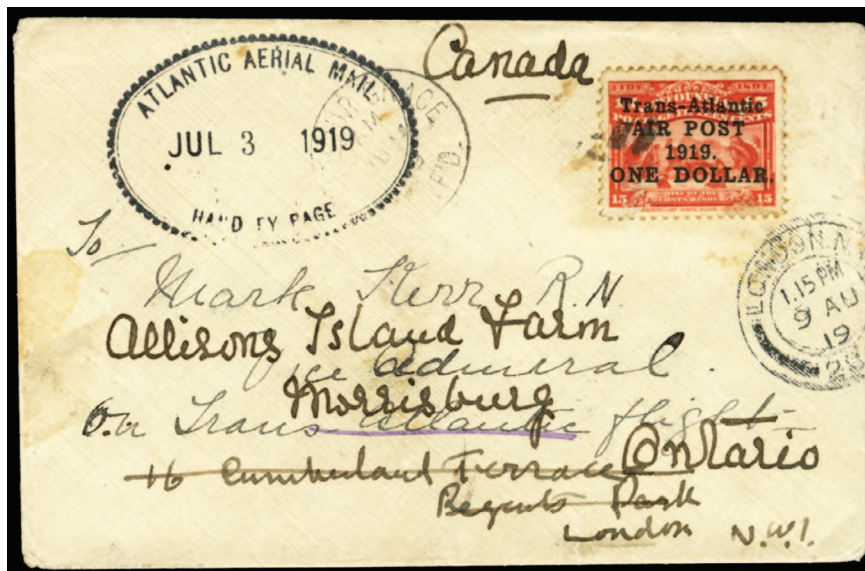 Canada
ATLANTIC AERIAL MAIL
JUL 3 1919
HAND EY PAGE
Trans-Atlantic
AIR POST
1919.
ONE DOLLAR.
15 15
LONDON
1.15 PM
9 AU
19
To
Mark Kerr R.N.
Allisons Island Farm
Admiral
Morrisburg
On Trans Atlantic flight
Ontario
16 Cumberland Terrace
Regents Park
London N.W.1.